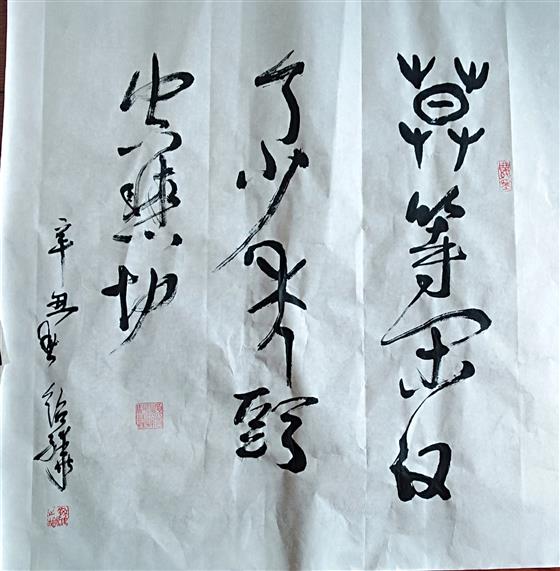 莫等闲白
了少年頭
空悲切
辛丑